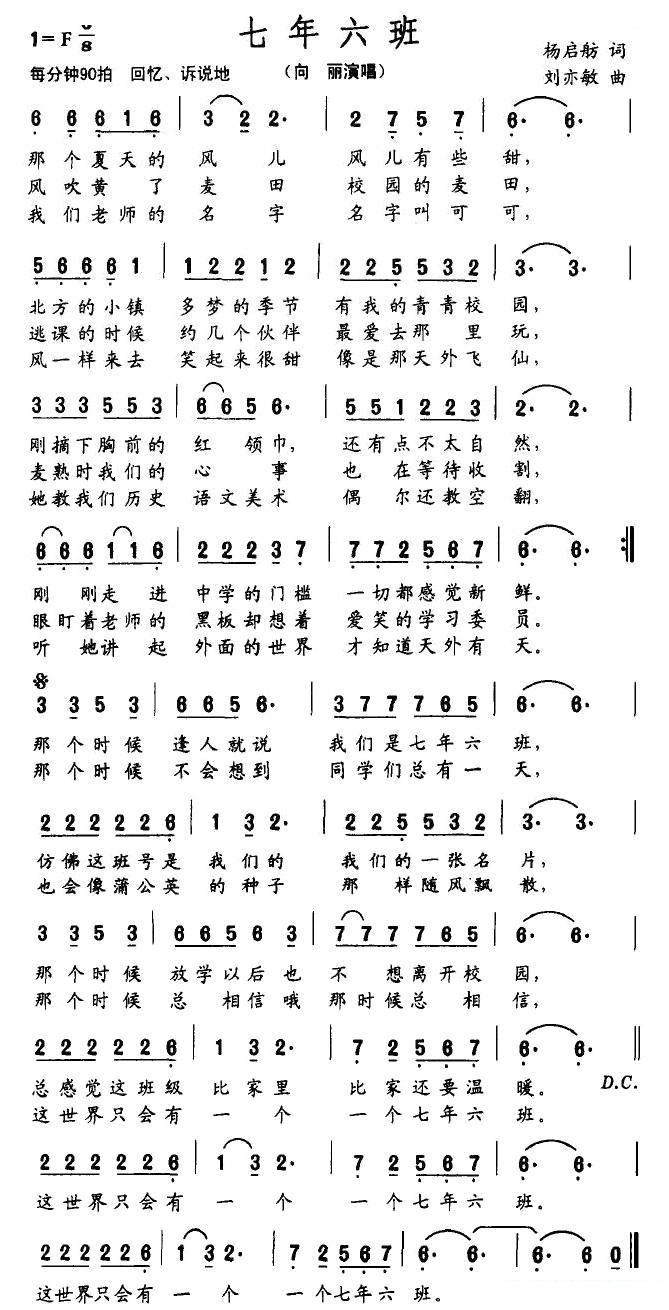 七年六班
1=F 6/8
杨启舫 词
每分钟90拍 回忆、诉说地 （向 丽演唱）
刘亦敏 曲
6 6 6 1 6 | 3 2 2· | 2 7 5 7 | 6· 6· |
那个夏天的 风 儿 风儿有些 甜，
风吹黄 了 麦 田 校园的麦 田，
我们老师的 名 字 名字叫可 可，
5 6 6 6 1 | 1 2 2 1 2 | 2 2 5 5 3 2 | 3· 3· |
北方的小镇 多梦的季节 有我的青青校 园，
逃课的时候 约几个伙伴 最爱去那 里 玩，
风一样来去 笑起来很甜 像是那天外飞 仙，
3 3 3 5 5 3 | 6 6 5 6· | 5 5 1 2 2 3 | 2· 2· |
刚摘下胸前的 红 领巾， 还有点不太自 然，
麦熟时我们的 心 事 也 在等待收 割，
她教我们历史 语文美术 偶 尔还教空 翻，
6 6 6 1 1 6 | 2 2 2 3 7 | 7 2 2 5 6 7 | 6· 6· :|
刚 刚走 进 中学的门槛 一切都感觉新 鲜。
眼盯着老师的 黑板却想着 爱笑的学习委 员。
听 她讲 起 外面的世界 才知道天外有 天。
3 3 5 3 | 6 6 5 6· | 3 7 7 7 6 5 | 6· 6· |
那个时候 逢人就说 我们是七年六 班，
那个时候 不会想到 同学们总有一 天，
2 2 2 2 2 6 | 1 3 2· | 2 2 5 5 3 2 | 3· 3· |
仿佛这班号是 我们的 我们的一张名 片，
也会像蒲公英 的种子 那 样随风飘 散，
3 3 5 3 | 6 6 5 6 3 | 7 7 7 7 6 5 | 6· 6· |
那个时候 放学以后也 不 想离开校 园，
那个时候 总 相信哦 那时候总 相 信，
2 2 2 2 2 6 | 1 3 2· | 7 2 5 6 7 | 6· 6· ||
总感觉这班级 比家里 比家还要温 暖。 D.C.
这世界只会有 一 个 一个七年六 班。
2 2 2 2 2 6 | 1 3 2· | 7 2 5 6 7 | 6· 6· |
这世界只会有 一 个 一个七年六 班。
2 2 2 2 2 6 | 1 3 2· | 7 2 5 6 7 | 6· 6· | 6· 6 0 ||
这世界只会有 一 个 一个七年六 班。